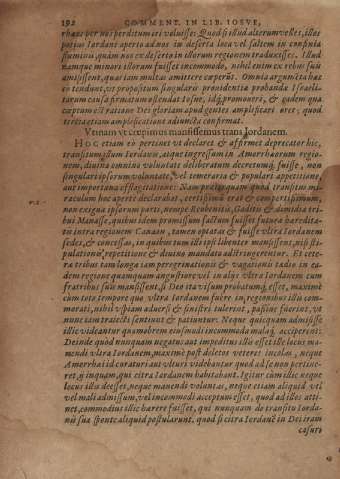 192 COMMENT. IN LIB. IOSVE,
rhæos per nos perditum iri voluisses. Quod si illud alterum velles, illos
potius Iordani aperto ad nos in deserta loca vel saltem in confinia
fluminis, quàm nos ex deserto in illorum regionem traduxisses. Illud
nanque minori illorum fuisset incommodo, nihil enim ex rebus suis
amisissent, quas iam multas amittere cœperūt. Omnia argumēta hæc
eo tendunt, vt propositum singularis prouidentiæ probandæ Israëli-
tarum causa firmatum ostendat Iosue, idq́; promoueri, & eadem qua
cœptum est ratione Dei gloriam apud gentes amplificari oret; quod
tertia etiam amplificatione adiuncta confirmat.
Vtinam vt cœpimus mansissemus trans Iordanem.
HOC etiam eò pertinet vt declaret & affirmet deprecator hic,
transitum istum Iordanis, atque ingressum in Amorrhæorum regio-
nem, diuina omnino voluntate deliberatum decretumq́; fuisse, non
singulari ipsorum voluntate, vel temeraria & populari appetitione,
aut importuna efflagitatione: Nam præterquam quod transitus mi-
raculum hoc aperte declarabat, certissimū erat & compertissimum,
non exiguæ ipsorum parti, nempe Rubenitis, Gaditis & dimidiæ tri-
bui Manasse, quibus idem promissum factum fuisset futuræ hæredita-
tis intra regionem Canaan, tamen optatas & fuisse vltra Iordanem
sedes, & concessas, in quibus tum illi ipsi libenter mansissent, nisi sti-
pulationis repetitione & diuino mandato adstringerentur. Et cete-
ræ tribus tam longa iam peregrinationis & vagationis tædio in ea-
dem regione quamquam angustiore vel in alijs vltra Iordanem cum
fratribus suis mansissent, si Deo ita visum probatumq́; esset, maximè
cùm toto tempore quo vltra Iordanem fuêre in regionibus illis com-
morati, nihil vspiam aduersi & sinistri tulerint, passiue fuerint, vt
nunc iam traiecti sentiunt & patiuntur. Neque quicquam admisisse
illic videantur quamobrem eiusmodi incommoda mala q́; acciperent:
Deinde quod nunquam negatus aut impeditus illis esset ille locus ma-
nendi vltra Iordanem, maximè post deletos veteres incolas, neque
Amorrhæi id curaturi aut vlturi videbantur quod ad se non pertine-
ret, ij inquam, qui citra Iordanem habitabant. Igitur cùm illic neque
locus illis deesset, neque manendi voluntas, neque etiam aliquid vel
vel mali admissum, vel incommodi acceptum esset, quod ad illos atti-
net, commodius illic hærere fuisset, qui nunquam de transitu Iorda-
nis suæ sponte aliquid postularunt, quod si citra Iordanē in Dei tram
casuro